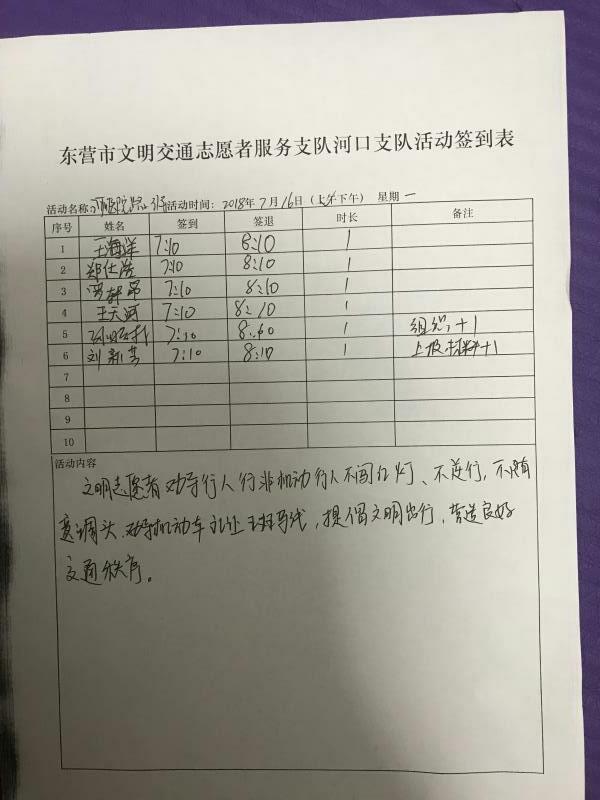 东营市文明交通志愿者服务支队河口支队活动签到表
活动名称: 活动时间: 2018年7月16日(上午下午) 星期一
序号 姓名 签到 签退 时长 备注
1 王海洋 7:10 8:10 1
2 郑仕浩 7:10 8:10 1
3 7:10 8:10 1
4 王天河 7:10 8:10 1
5 7:10 8:10 1 组织+1
6 刘新芳 7:10 8:10 1 上报材料+1
7
8
9
10
活动内容
文明志愿者劝导行人行非机动行人不闯红灯、不逆行,不随
意调头,劝导机动车礼让斑马线,提倡文明出行,营造良好
交通秩序。